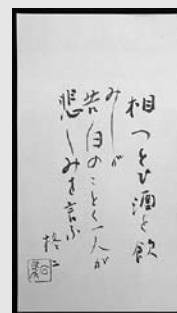 相つどひ酒を飲
みしが
告白のごとく一人が
悲しみを言ふ
柊二